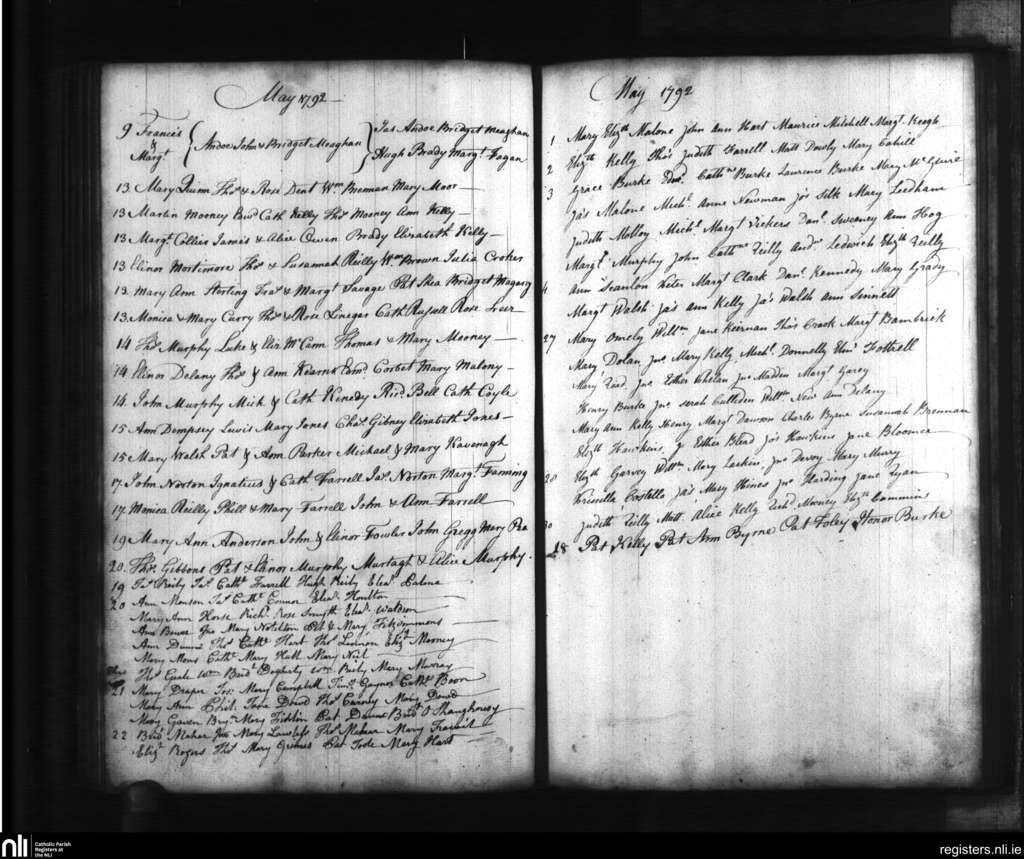 May 1792
9 Francis & Margt { Andoe John & Bridget Meaghan } Jas Andoe Bridget Meaghan
Hugh Brady Margt Fagan
13 Mary Quinn Thos & Rose Dent Wm Brennan Mary Moor
13 Martin Mooney Bryd Cath Kelly Thos Mooney Ann Kelly
13 Margt Collier James & Alice Owen Brady Elizabeth Kelly
13 Elinor Mortimore Thos & Susannah Reilly Wm Brown Julia Croker
13 Mary Ann Sterling Fras & Margt Savage Pat Shea Bridget Magary
13 Monica & Mary Curry Thos & Rose Linegar Cath Russell Rose
14 Thos Murphy Luke & Elir McCann Thomas & Mary Mooney
14 Elinor Delany Thos & Ann Kearns Edmd Corbet Mary Malony
14 John Murphy Mich & Cath Kenedy Ricd Bell Cath Coyle
15 Ann Dempsey Lewis Mary Jones Chas Gibney Elizabeth Jones
15 Mary Walsh Pat & Ann Parker Michael & Mary Kavenagh
17 John Norton Ignatius & Cath Farrell Jas Norton Margt Fanning
17 Monica Reilly Phill & Mary Farrell John & Ann Farrell
19 Mary Ann Anderson John & Elinor Fowler John Gregg Mary
20 Thos Gibbons Pat & Elinor Murphy Murtagh & Alice Murphy
19 Jas Reily Jas Cathe Farrell Hugh Reily Eleanr
20 Ann Monson Jas Cathe Connor Eleanr Houlton
Mary Ann Horse Richd Rose Smyth Eleanr Waldron
Ann Jno Mary Pat & Mary Fitzsimmons
Ann Thos Cathe Hart Thos Lennon Elizt Mooney
Mary Mons Cathe Mary Hall Mary Neil
Thos Geale Wm Bridt Dogherty Wm Reily Mary Murray
21 Mary Draper Jos Mary Campbell Timy Gaynor Cathe Boon
Mary Ann Phil. Jane Dowd Thos Carney Mary Dowd
Mary Gaven Bryn Mary Pat Bridt O Shaughnesy
22 Brid Maher Jno Mary Lawless Thos Maher Mary
Elizt Rogers Thos Mary Grimes Pat Toole Mary Hart
May 1792
1 Mary Elizth Malone John Ann Hart Maurice Mitchell Margt Keogh
2 Elizth Kelly Thos Judith Farrell Matt Dowly Mary Cahill
3 Grace Burke Edmd Cathne Burke Laurence Burke Mary McGuire
Jas Malone Michl Anne Newman Jos Silk Mary Leedham
Judith Molloy Michl Margt Vickers Danl Sweeney Ann Hog
Margt Murphy John Cathne Reilly Andw Ledwich Elizth Reilly
4 Ann Scanlon Peter Margt Clark Danl Kennedy Mary Grady
Margt Walsh Jas Ann Kelly Jas Walsh Ann Sinnett
27 Mary Omely Willm Jane Keernan Thos Crook Margt Bambrick
Mary Dolan Jno Mary Kelly Michl Donnelly Elinr Fottrell
Mary Reed Jno Esther Whelan Jno Madden Margt Carey
Henry Burke Jno Sarah Culliden Willm New Ann Delany
Mary Ann Kelly Henry Margt Dawson Charles Byrne Susannah Brennan
Elizth Hawkins J Esther Blead Jos Hawkins Jane Bloomer
20 Elizth Garvey Willm Mary Larkin Jno Devoy Mary Murry
Costello Jas Mary Hines Jno Harding Jane Ryan
30 Judith Reilly Matt Alice Kelly Richd Mooney Elizth Cummins
18 Pat Kelly Pat Ann Byrne Pat Foley Honor Burke
nli Catholic Parish
Registers at
the NLI
registers.nli.ie